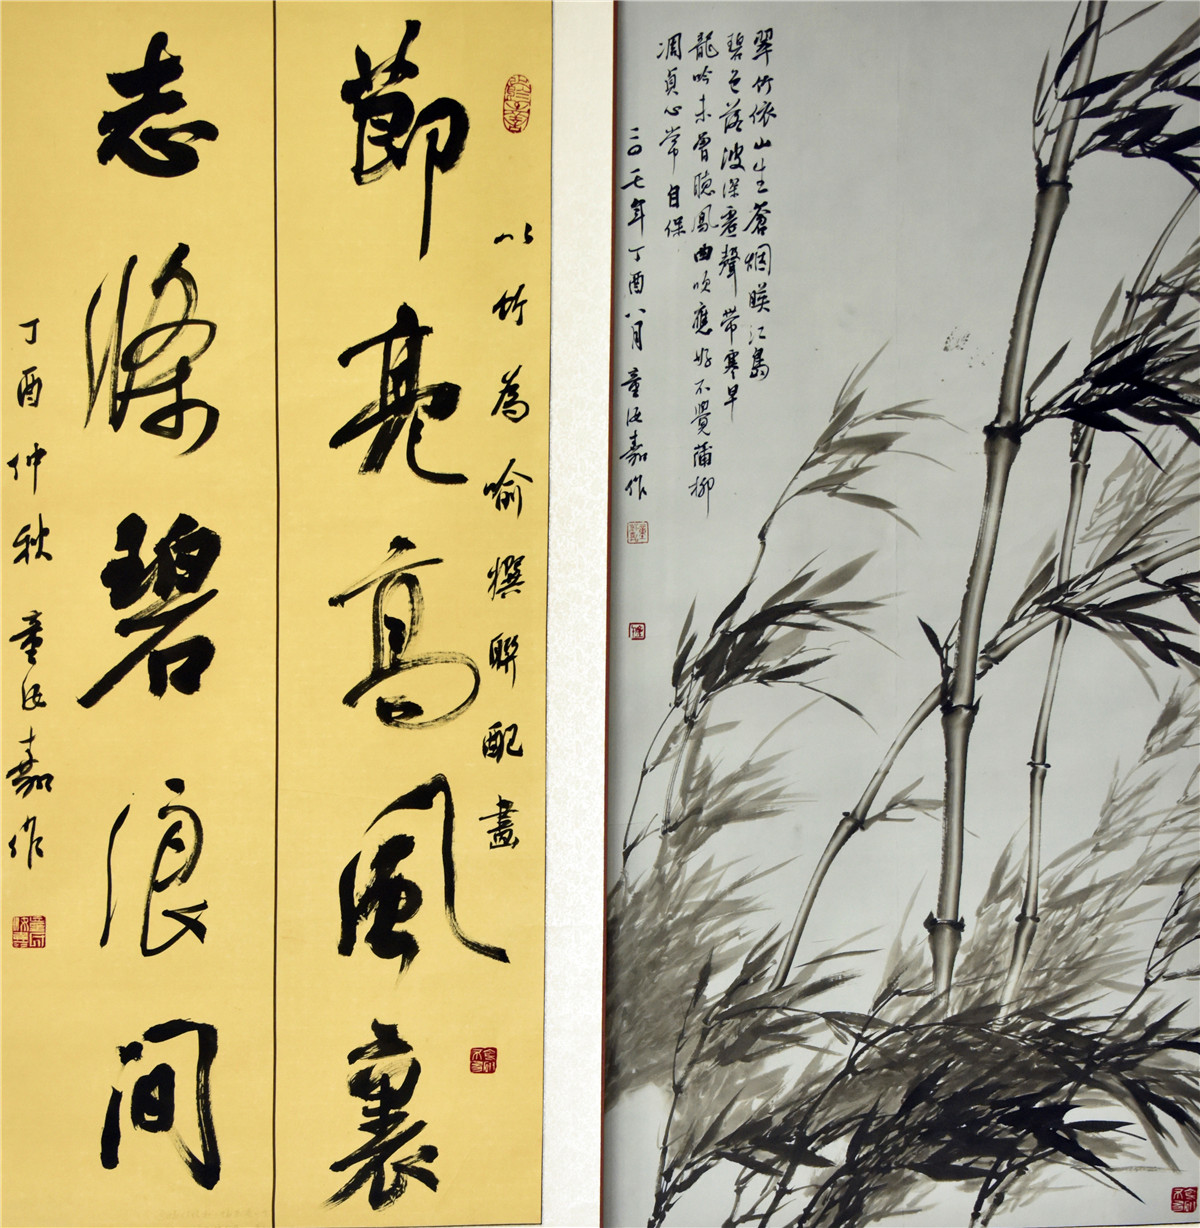 翠竹依山生蒼烟暎江島
碧色落波深虛聲帶寒早
龍吟未曾聽鳳曲吹應好不學蒲柳
凋貞心常自保
二〇一七年丁酉八月童汝嘉作
以竹為喻撰聯配畫
節亮高風裏
志滌碧浪間
丁酉仲秋童汝嘉作